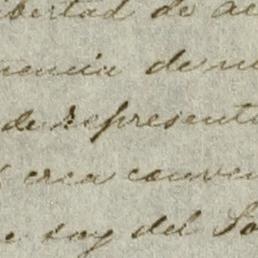 libertad de ac
nencia de m
de represent
crea conven
e soy del So